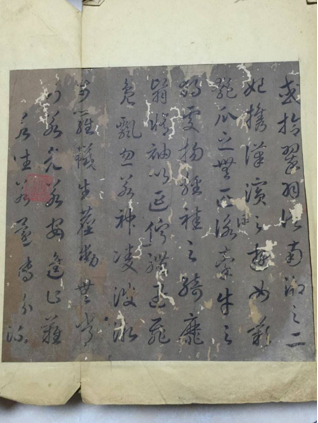 或拾翠羽從南湘之二
妃攜漢濱之遊女歎
匏瓜之無匹詠牽牛之
獨處揚輕袿之綺靡
翳脩袖以延佇體迅飛
鳧飄忽若神凌波微
步羅襪生塵動無常
則若危若安進止難
期若往若還轉眄流